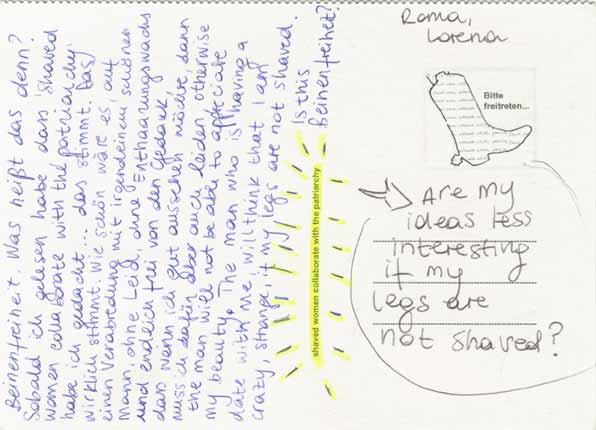 Beinenfreiheit. Was heißt das denn?
Sobald ich gelesen habe dass "shaved
women collaborate with the patriarchy"
habe ich gedacht... das stimmt. Das
wirklich stimmt. Wie schön wäre es, auf
einen Verabredung mit irgendeinem schönen
Mann, ohne Leid, ohne Enthaarungswachs
und endlich frei von den Gedank,
dass wenn ich gut aussehen möchte dann
muss ich dafür aber auch leiden, otherwise
the man will not be able to appreciate
my beauty. The man who is having a
date with me, will think that I am
crazy strange, if my legs are not shaved.
Is this
Beinenfreiheit?
shaved women collaborate with the patriarchy
Roma,
Lorena
Bitte
freitreten...
Are my
ideas less
interesting
if my
legs are
not shaved?